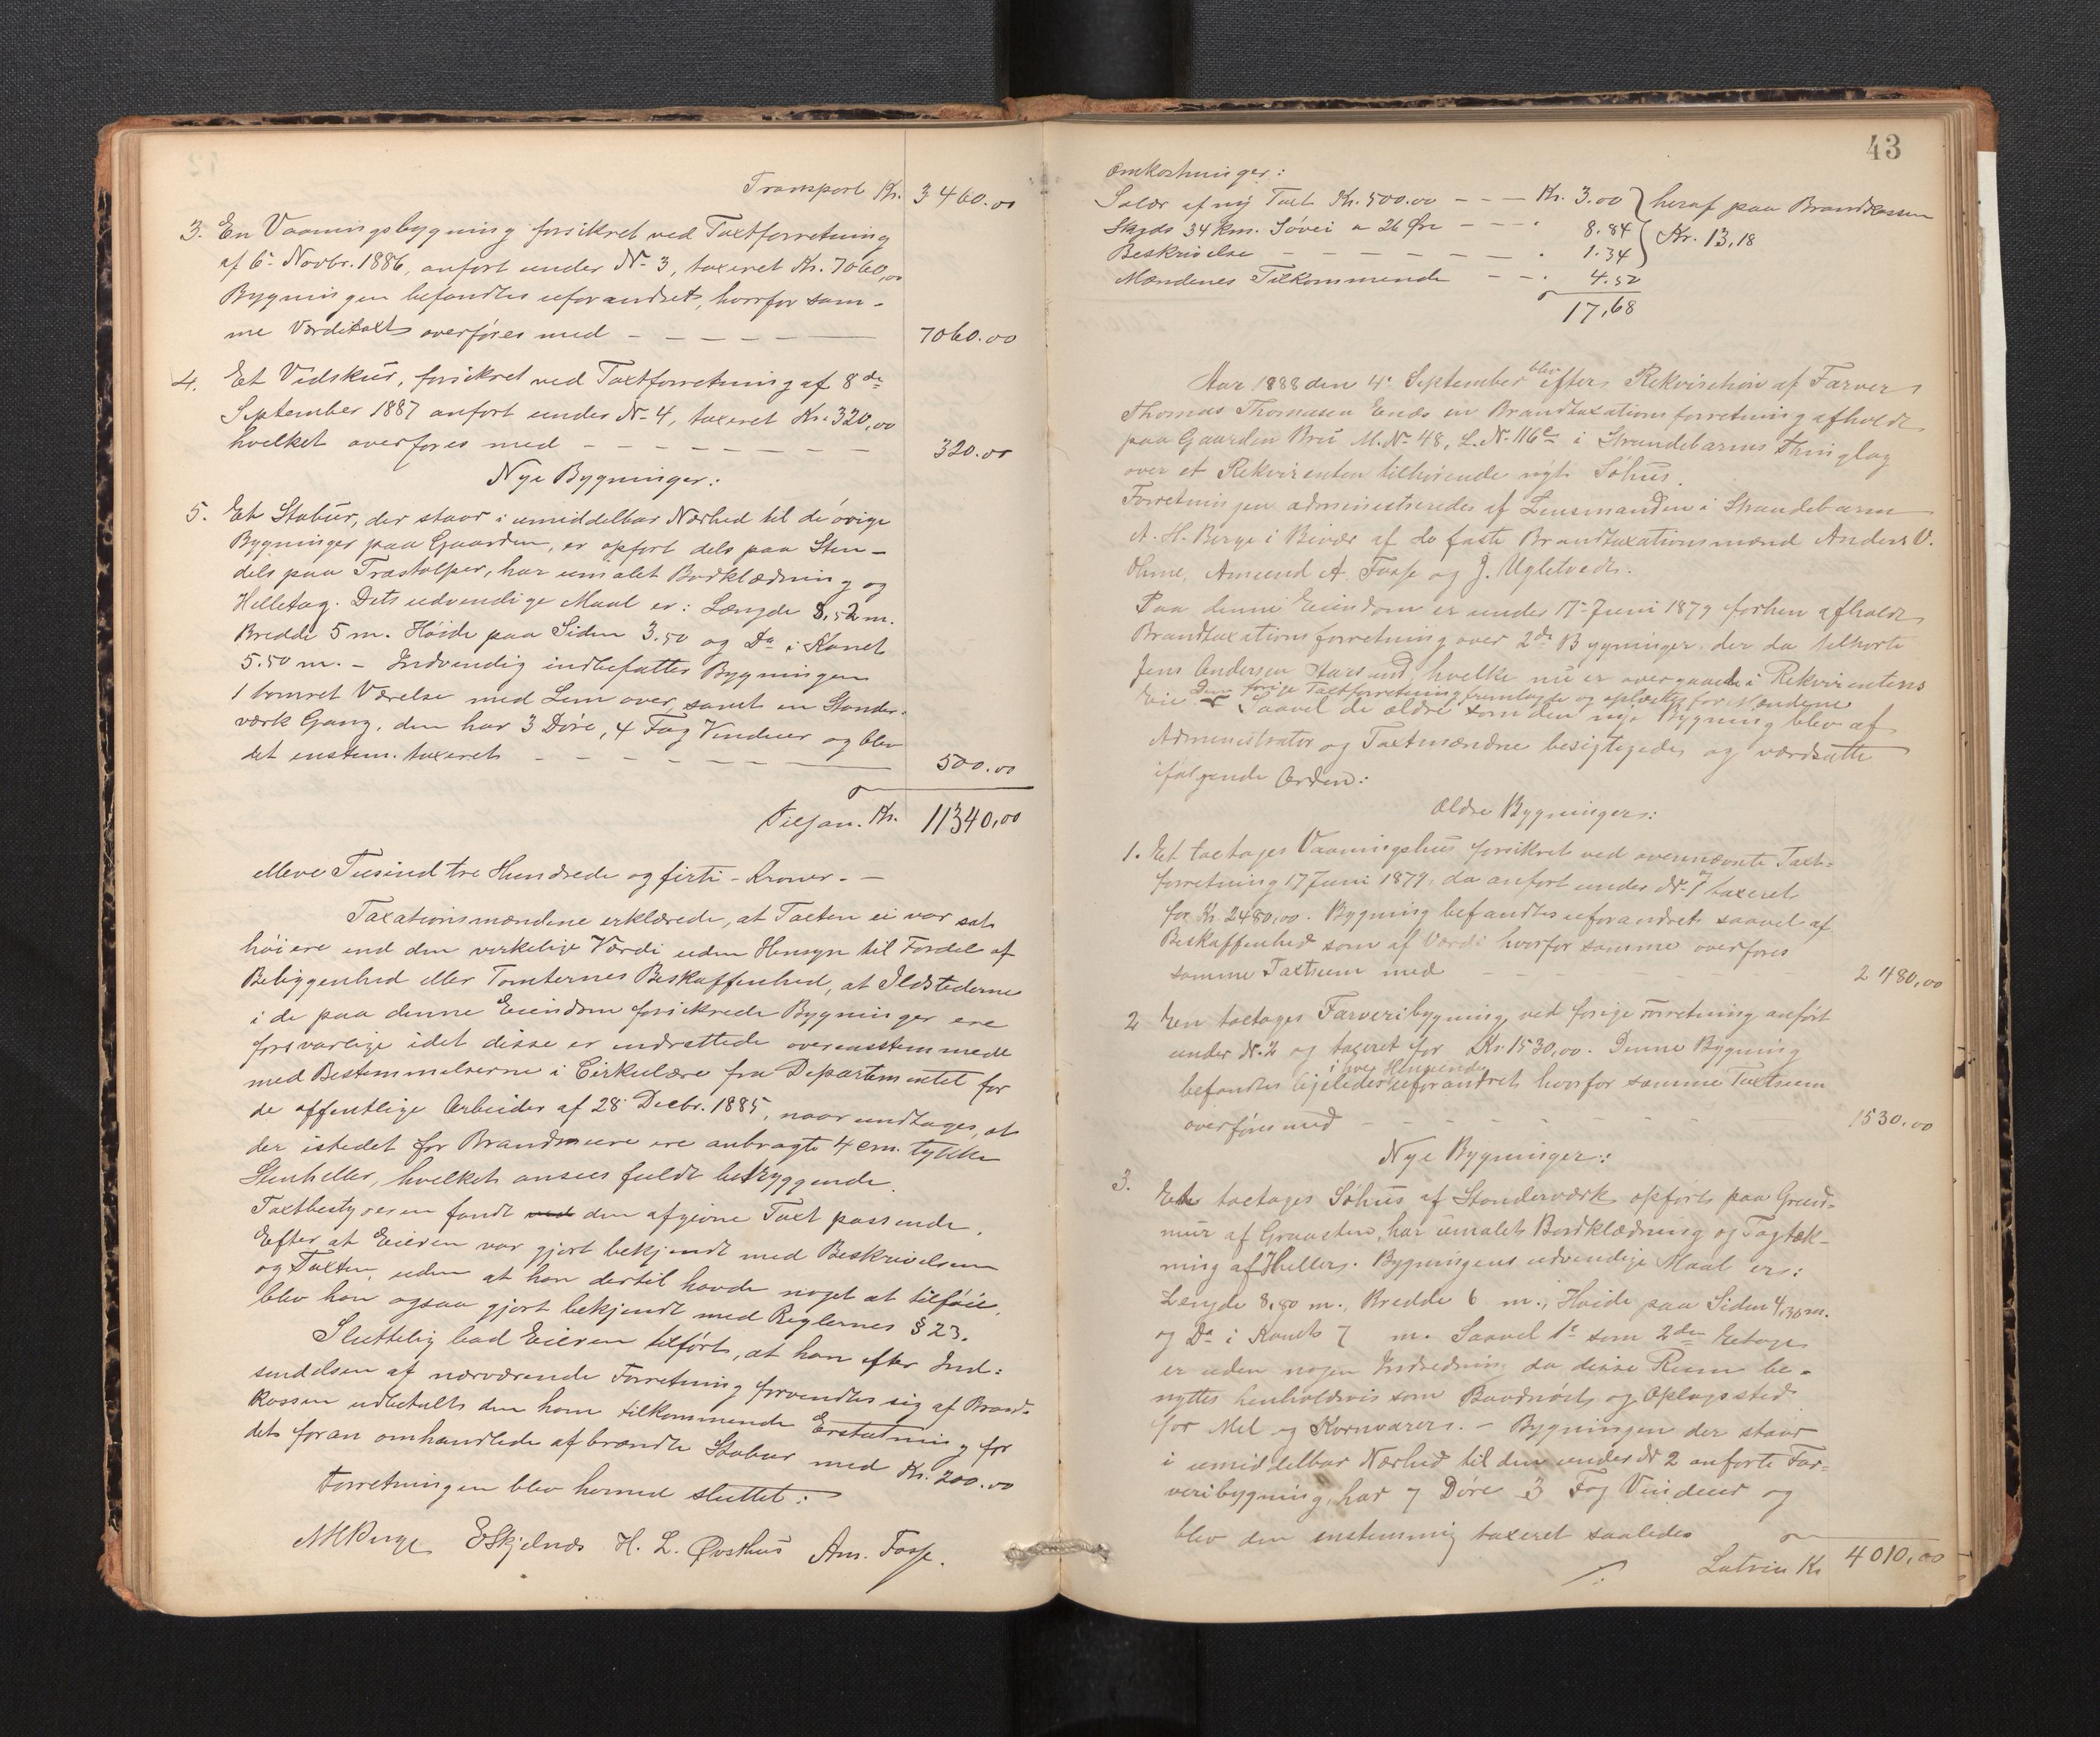 Transport Kr. 3460.00
3. En Vaaningsbygning forsikret ved Taxtforretning
af 6te Novbr. 1886, anført under No 3, taxeret Kr. 7060,00
Bygningen befandtes uforandret, hvorfor sam-
me Værditaxt overføres med 7060.00
4. Et Vedskur, forsikret ved Taxtforretning af 8de
September 1887 anført under No 4, taxeret Kr. 320,00
hvilket overføres med 320.00
Nye Bygninger:
5. Et Stabur, der staar i umiddelbar Nærhed til de øvrige
Bygninger paa Gaarden, er opført dels paa Sten-
dels paa Træstolper, har umalet Bordklædning og
Helletag. Dets udvendige Maal er: Længde 8,52 m.
Bredde 5 m. Høide paa Siden 3.50 og Do i Rønet
5.50 m. - Indvendig indbefatter Bygningen
1 tømret Værelse med Lem over, samt en Stender-
værk Gang, den har 3 Døre, 4 Fag Vinduer og blev
det enstem. taxeret 500.00
Tilsan. Kr. 11340,00
elleve Tusind tre Hundrede og firti - Kroner. -
Taxationsmændene erklærede, at Taxten ei var sat
høiere end den virkelige Værdi uden Hensyn til Fordel af
Beliggenhed eller Tomternes Beskaffenhed, at Ildstederne
i de paa denne Eiendom forsikrede Bygninger ere
forsvarlige idet disse er indrettede overensstemmede
med Bestemmelserne i Cirkulære fra Departementet for
de offentlige Arbeider af 28 Decbr. 1885, naar undtages, at
der istedet for Brandmure ere anbragte 4 cm. tykke
Stenheller, hvilket ansees fuldt betryggende.
Taxtbestyreren fandt ved den afgivne Taxt passende.
Efter at Eieren var gjort bekjendt med Beskrivelsen
og Taxten, uden at han dertil havde noget at tilføie,
blev han ogsaa gjort bekjendt med Reglernes § 23.
Sluttelig bad Eieren tilført, at han efter Ind-
sendelsen af nærværende Forretning forventer sig af Brand-
kassen udbetalt den ham tilkommende Erstatning for
det foran omhandlede afbrændte Stabur med Kr. 200.00
Forretningen blev hermed sluttet:
AHBerge ESkjelnæs H. L. Øvsthus Am. Fosse.
43
Omkostninger:
Salær af ny Taxt Kr. 500.00 - - - Kr. 3.00 } heraf paa Brandkassen
Skyds 34 km. Søvei a 26 Øre - - - 8.84 } Kr. 13,18
Beskrivelse 1.34
Mændenes Tilkommende 4.52
17,68
Aar 1888 den 4de September blev efter Rekvisition af Farver
Thomas Thomasen Enæs en Brandtaxationsforretning afholdt
paa Gaarden Bru M. No 48, L. No 116c i Strandebarms Thinglag
over et Rekvirenten tilhørende nyt Søhus.
Forretningen administreredes af Lensmanden i Strandebarm
A. H. Berge i Bivær af de faste Brandtaxationsmænd Anders V.
Ohme, Amund A. Fosse og J. Ugletvedt.
Paa denne Eiendom er under 17de Juni 1879 forhen afholdt
Brandtaxationsforretning over 2de Bygninger, der da tilhørte
Jens Andersen Aarsand, hvilke nu er overgaaede i Rekvirentens
Eie. Den forige Taxtforretning fremlagdes og oplæstes for Mændene
Saavel de ældre som den nye Bygning blev af
Administrator og Taxtmændne besigtigede og værdsatte
ifølgende Orden:
Ældre Bygninger:
1. Et toetages Vaaningshus forsikret ved ovennævnte Taxt-
forretning 17 Juni 1879, da anført under No 1 og taxeret
for Kr. 2480,00. Bygning befandtes uforandret saavel af
Beskaffenhed som af Værdi hvorfor samme overføres
samme Taxtsum med 2480,00
2 En toetages Farveribygning, ved forige Forretning anført
under No 2 og taxeret for Kr 1530,00. Denne Bygning
befandtes ligeledes i hver Henseende uforandret hvorfor samme Taxtsum
overføres med 1530.00
Nye Bygninger:
3. Et toetages Søhus af Stenderværk opført paa Grund-
mur af Graasten, har umalet Bordklædning og Tagtæk-
ning af Heller. Bygningens udvendige Maal er:
Længde 8,80 m., Bredde 6 m., Høide paa Siden 4,30 m.
og Do i Rønet 7 m. Saavel 1ste som 2den Etage
er uden nogen Indredning da disse Rum be-
nyttes henholdsvis som Baadnøst og Oplagssted
for Mel og Kornvarer. - Bygningen der staar
i umiddelbar Nærhed til den under No 2 anførte Far-
veribygning, har 7 Døre 3 Fag Vinduer og
blev den enstemmig taxeret saaledes
Latria Kr 4010,00